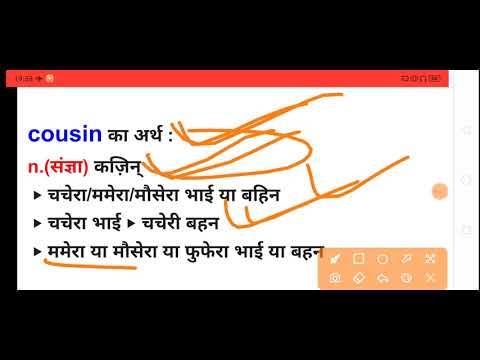 19:38
cousin का अर्थ :
n.(संज्ञा) कज़िन्
▸ चचेरा/ममेरा/मौसेरा भाई या बहिन
▸ चचेरा भाई ▸ चचेरी बहन
▸ ममेरा या मौसेरा या फुफेरा भाई या बहन